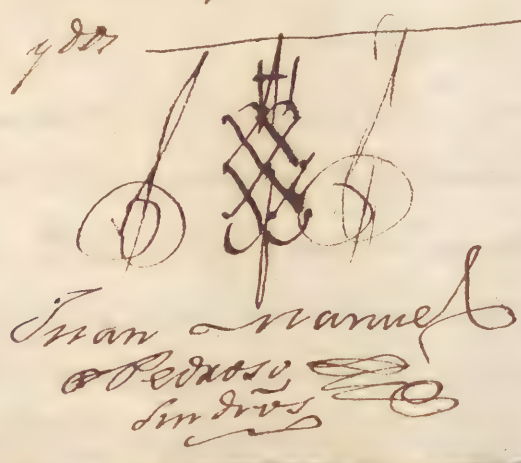 y dos
Juan Manuel
Pedroso
Sin drõs